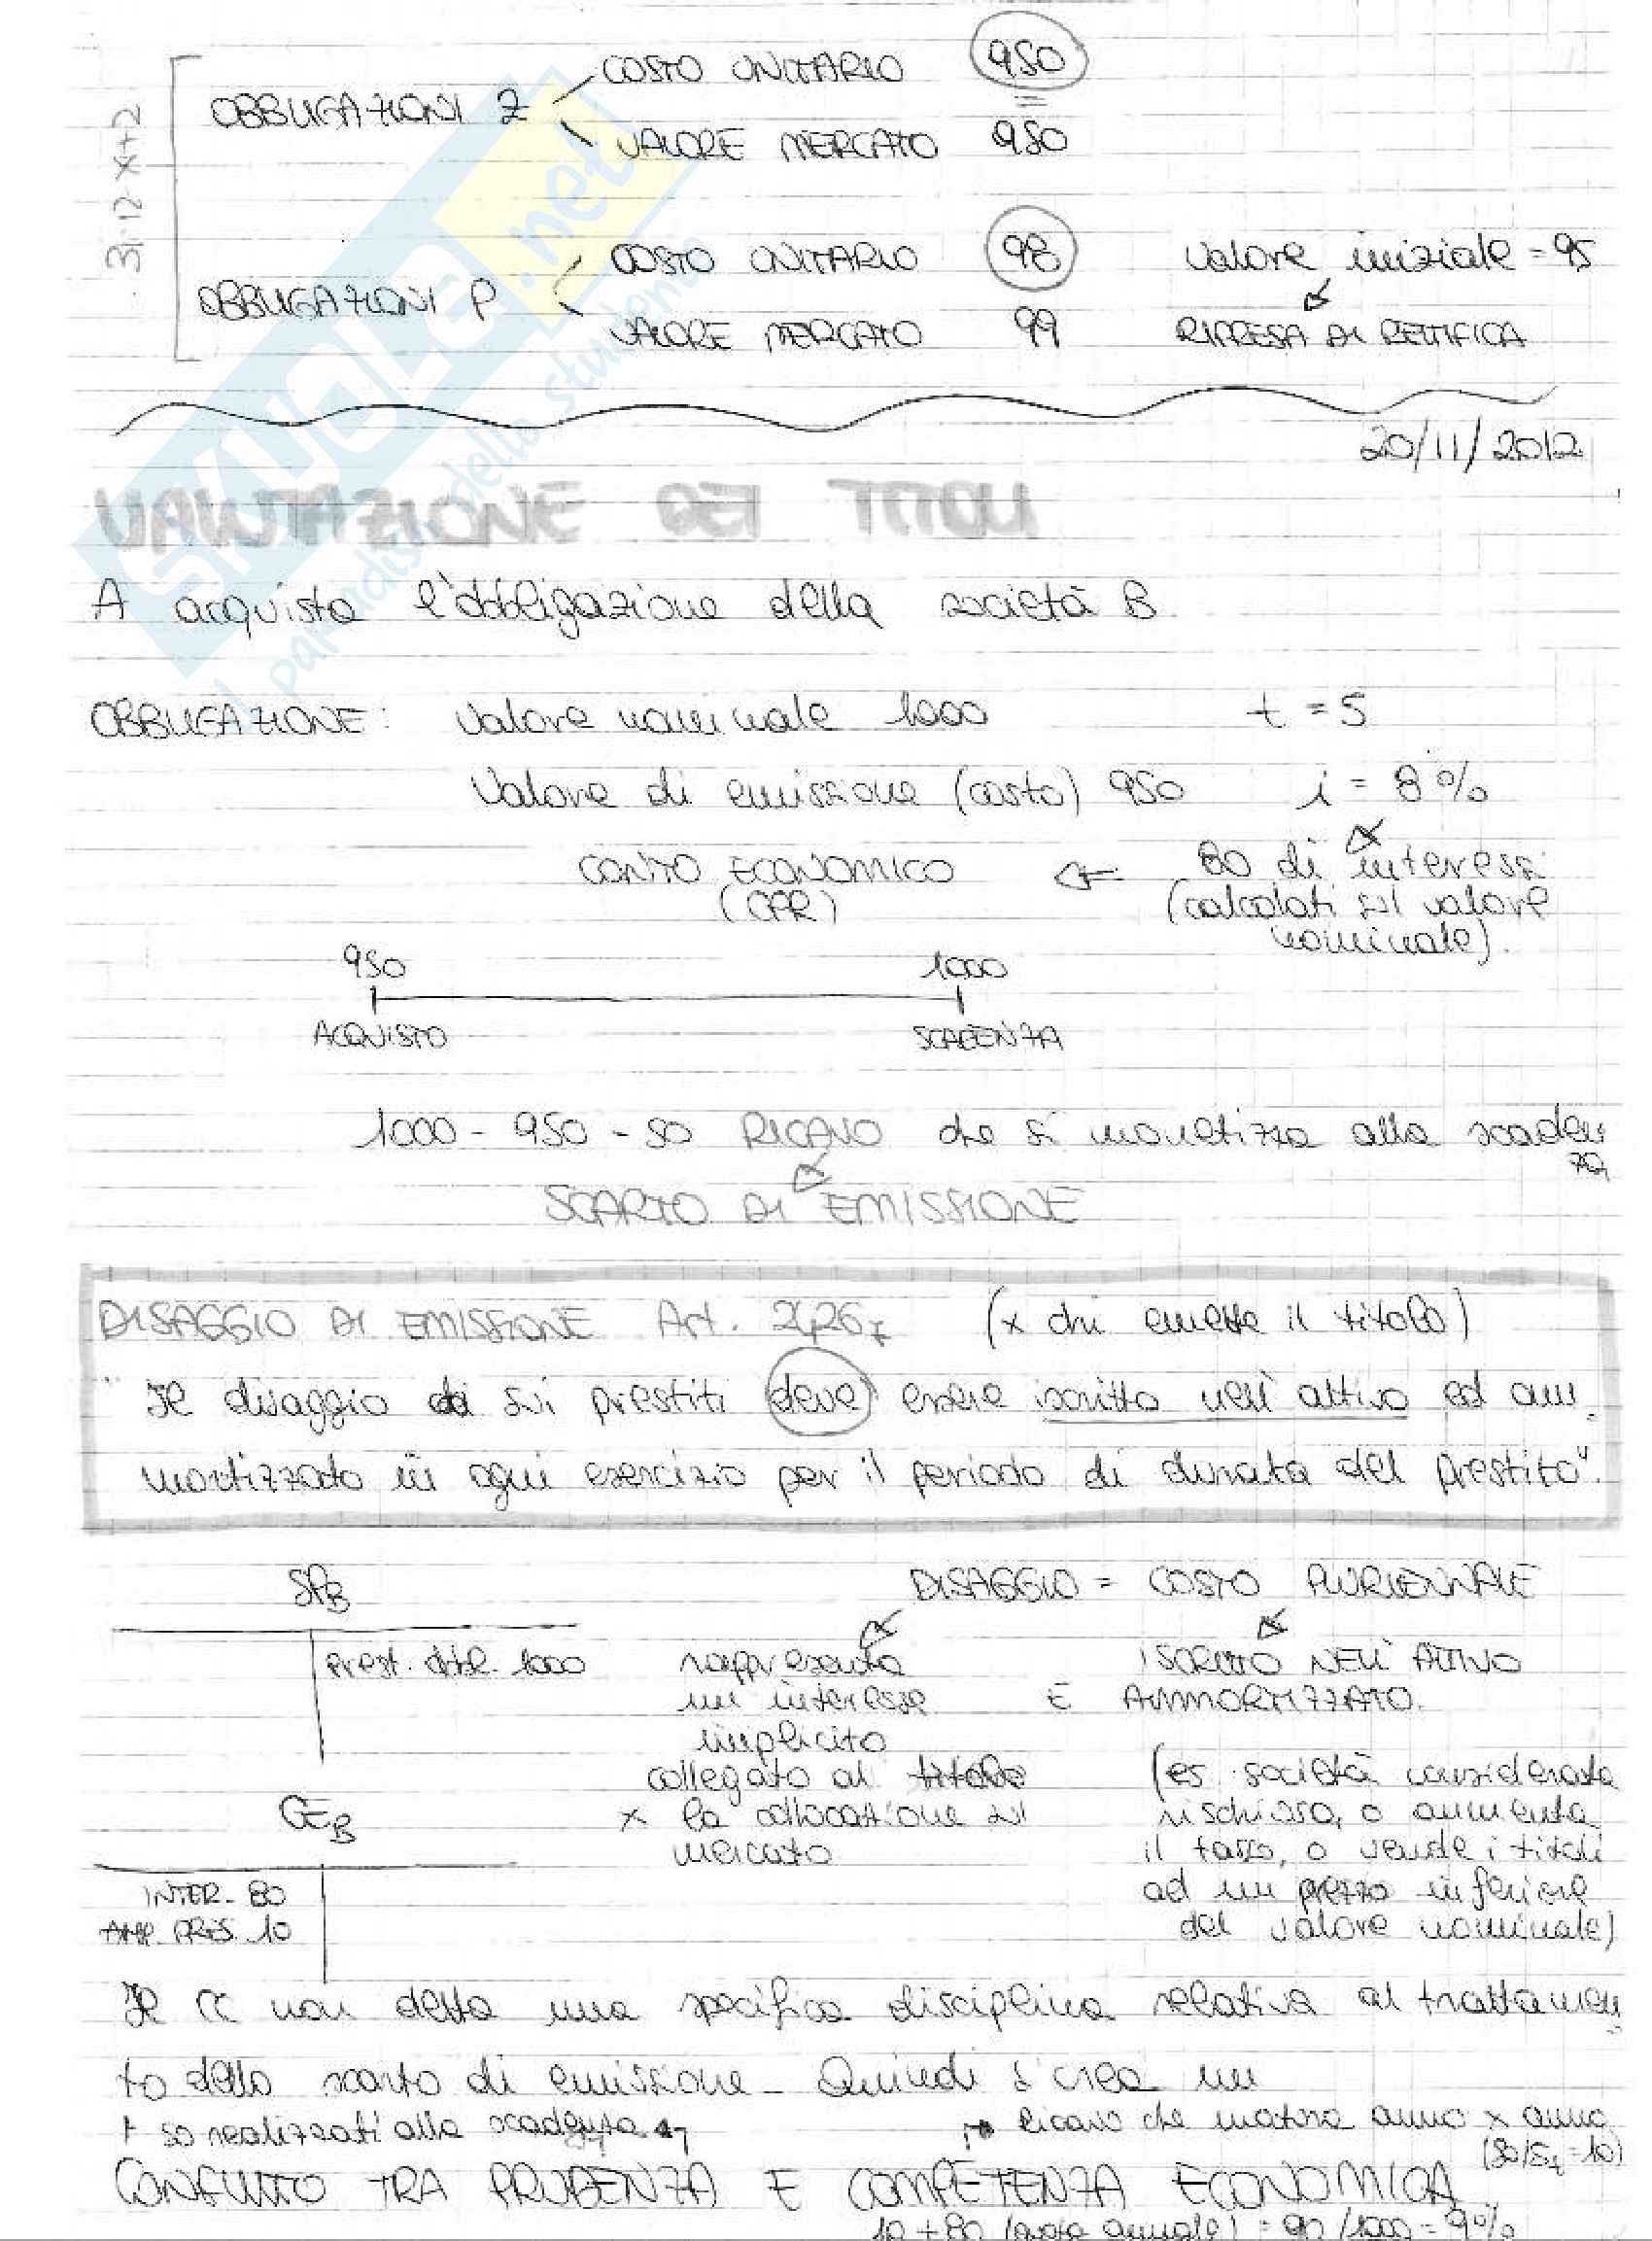 31.12 x+2
OBBLIGAZIONI Z
COSTO UNITARIO 950
VALORE MERCATO 980
OBBLIGAZIONI P
COSTO UNITARIO 98 valore iniziale = 95
VALORE MERCATO 99 RIPRESA DI RETTIFICA
20/11/2012
VALUTAZIONE DEI TITOLI
A acquista l'obbligazione della società B.
OBBLIGAZIONE: valore nominale 1000 t = 5
Valore di emissione (costo) 950 i = 8%
CONTO ECONOMICO ⇐ 80 di interessi
(calcolati sul valore
nominale).
950 1000
ACQUISTO SCADENZA
1000 - 950 = 50 RICAVO che si monetizza alla scaden
za
SCARTO DI EMISSIONE
DISAGGIO DI EMISSIONE Art. 2426 7 (x chi emette il titolo)
"Il disaggio sui prestiti deve essere iscritto nell'attivo ed am
mortizzato in ogni esercizio per il periodo di durata del prestito".
SPB DISAGGIO = COSTO PLURIENNALE
prest. obbl. 1000 rappresenta ISCRITTO NELL'ATTIVO
un interesse E AMMORTIZZATO.
implicito
collegato al titolo (es. società considerata
CEB x la collocazione sul rischiosa, o aumenta
mercato il tasso, o vende i titoli
INTER. 80 ad un prezzo inferiore
AMM. DIS. 10 del valore nominale)
Il CC non detta una specifica disciplina relativa al trattamen
to dello scarto di emissione. Quindi si crea un
50 realizzati alla scadenza ricavo che matura anno x anno
(50/5 = 10)
CONFLITTO TRA PRUDENZA E COMPETENZA ECONOMICA
10 + 80 (quota annuale) = 90 / 1000 = 9%
SKUOLA.net
il paradiso dello studente